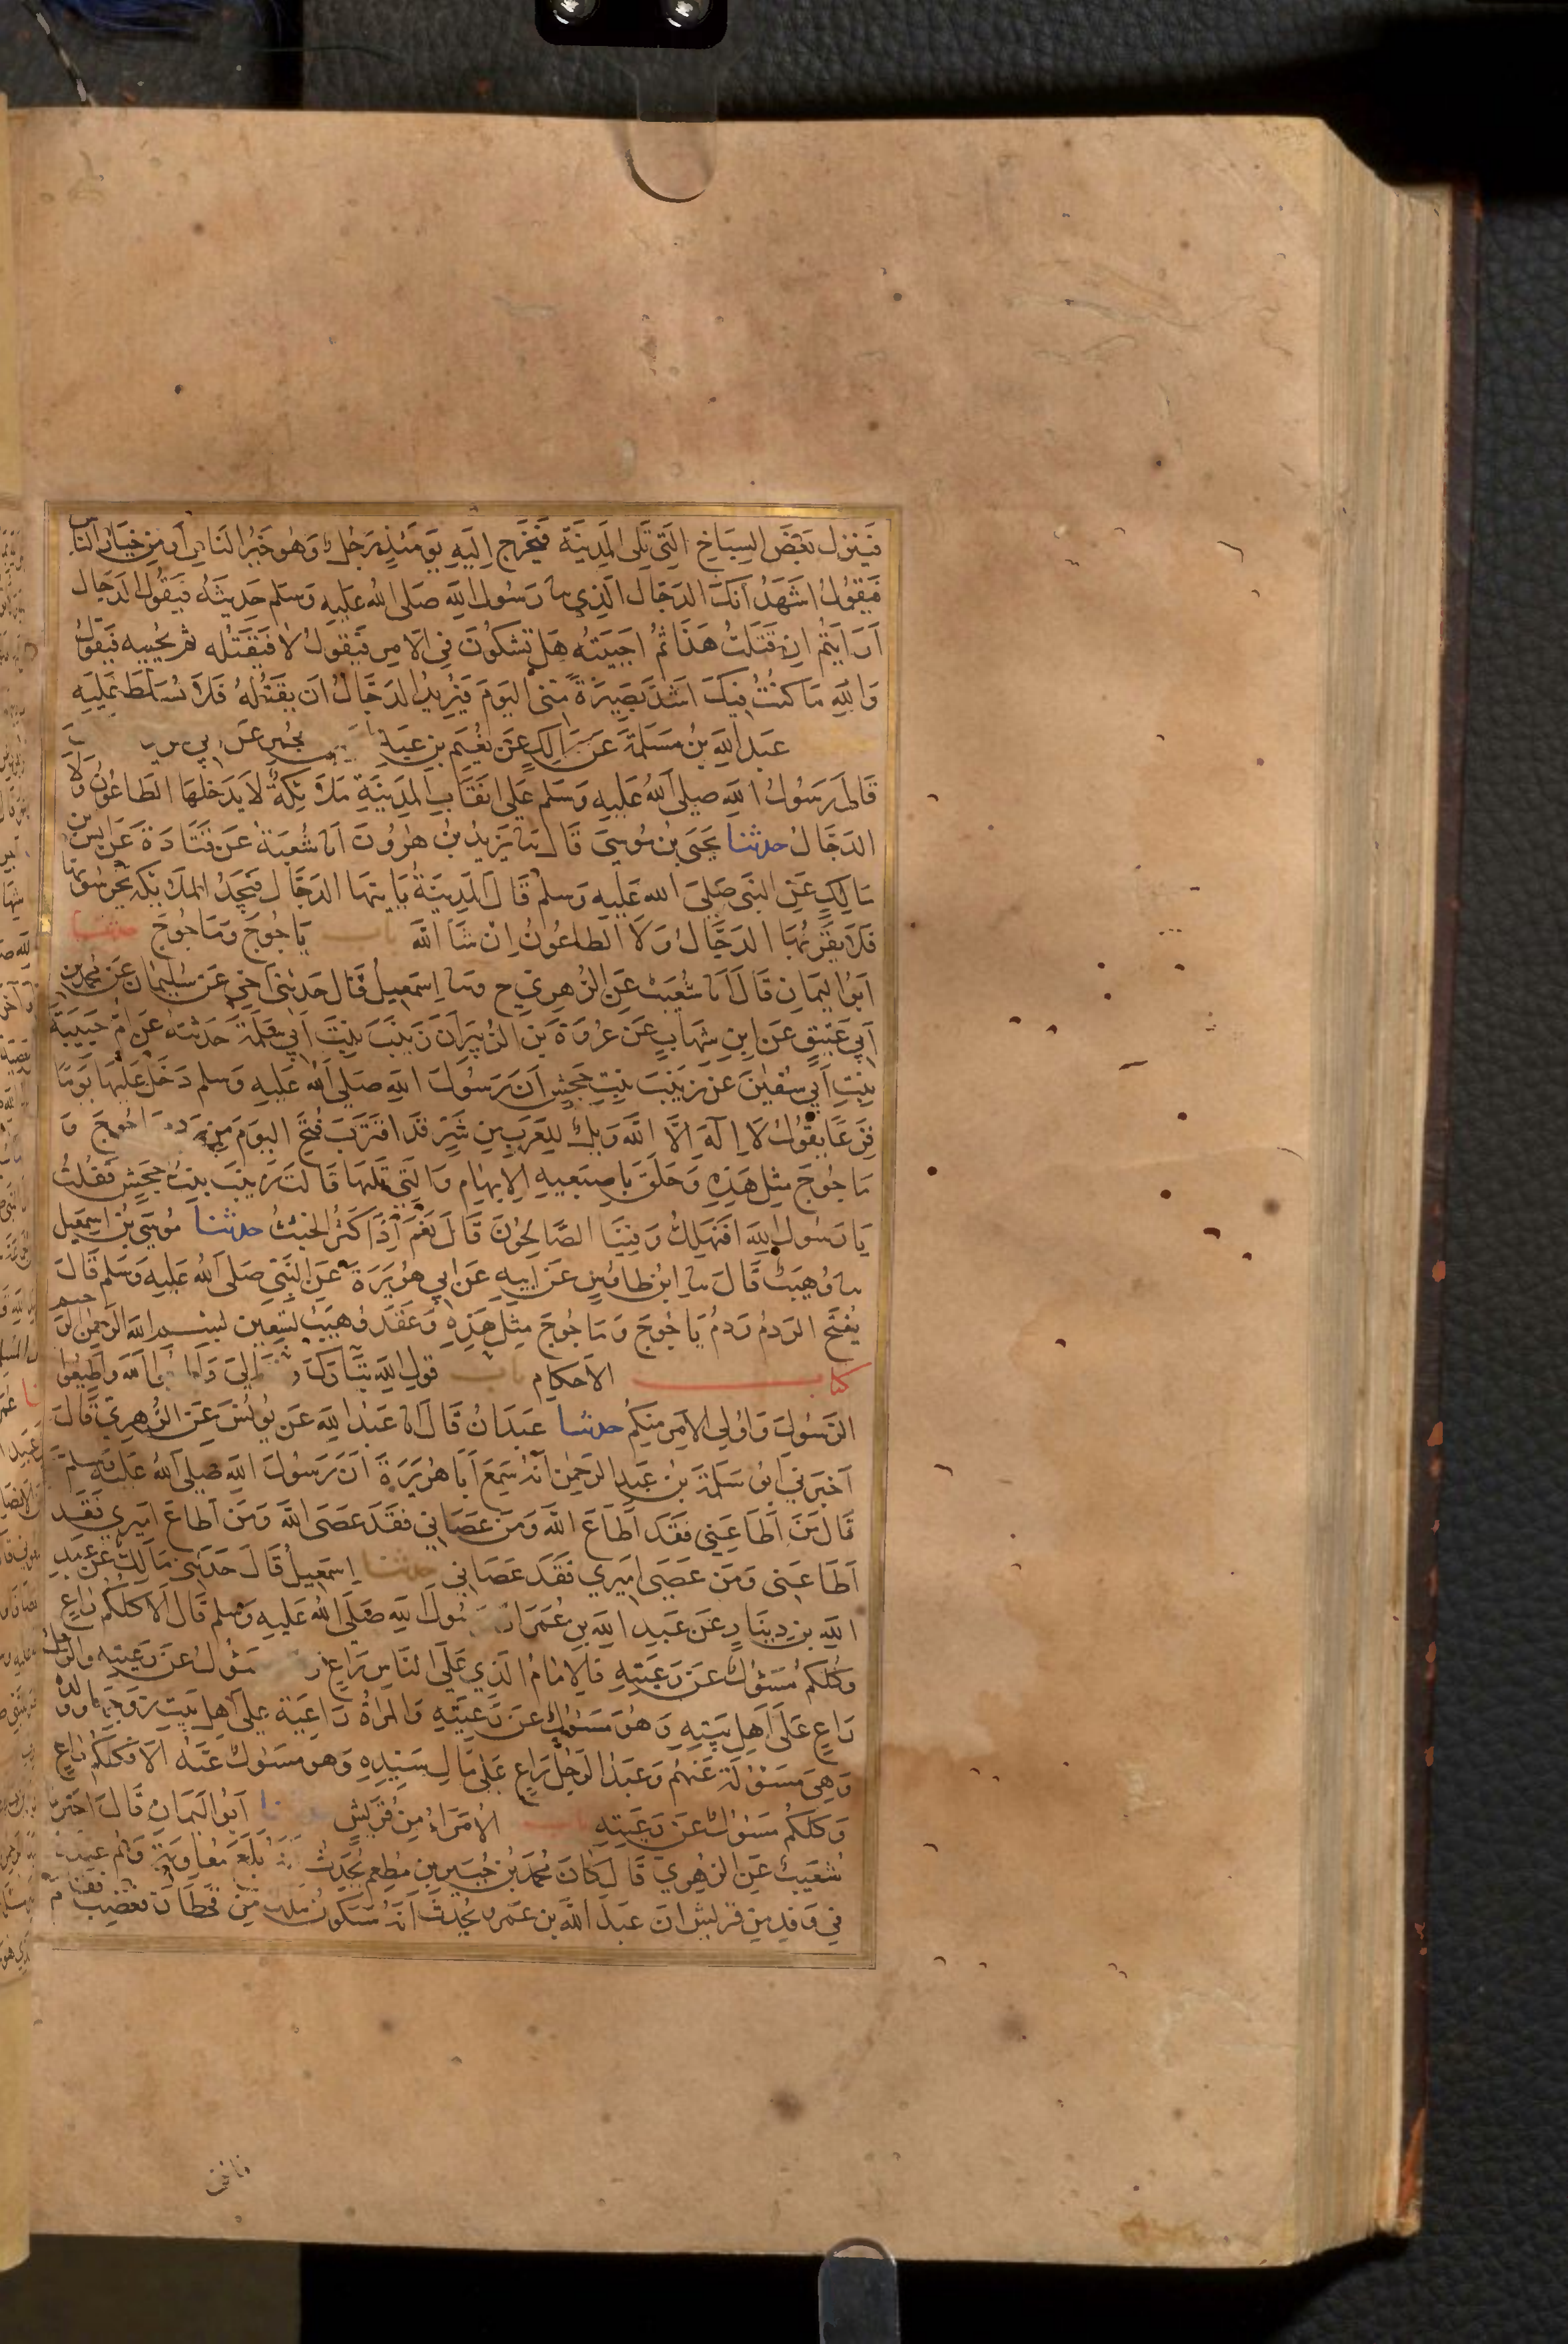 فَيَنْزِل بَعْضَ السِّبَاخِ الَّتِي تَلِى الْمَدِينَةَ فَيَخْرُج اِلَيْهِ يَوْمَئِذٍ رَجُلٌ وَهُوَ خَيْرُ النَّاسِ أَو مِن خِيَارِ النَّاسِ
فَيَقُولُ اَشْهَدُ اَنَّكَ الدَجَّال الَّذِي ثنا رَسُولُ اللهِ صَلى اللهُ عَلَيهِ وَسَلم حَدِيثَهُ فَيَقُولُ الدَجَّال
اَرَاَيْتُم اِنْ قَتَلْتُ هَذَا ثُمَّ اَحْيَيْتُه هَلْ تَشُكُّونَ فِي الاَمرِ فَيَقُولُونَ لاَ فَيَقْتُلُه ثم يُحْيِيه فَيَقُولُ
وَاللهِ مَا كُنْتُ فِيْكَ اَشَدَّ بَصِيرَةً مِّنّى اليَومَ فَيُرِيدُ الدَجَّالُ اَن يَقْتُلَهُ فَلاَ يُسَلَّطُ عَلَيهِ
عَبدُ اللهِ بْنُ مَسْلَمَةَ عَن مَالِكٍ عَن نُعَيم بنِ عَبدِ
قَالَ رَسُولُ اللهِ صَلى اللهُ عَلَيهِ وَسَلم عَلَى اَنْقَابِ المَدِينَةِ مَلاَئِكَةٌ لاَ يَدخُلُهَا الطَاعُونُ وَلاَ
الدَجَّالُ حدثنا يَحيَى بنُ مُوسَى قَالَ ثنا يَزِيدُ بنُ هٰرُونَ انا شُعبَةُ عَن قَتَادَةَ عَن اَنَسِ بن
مَالِكٍ عَنِ النَّبِي صَلى اللهُ عَلَيهِ وَسَلم قَالَ المَدِينَةُ يَاتِيهَا الدَجَّال فَيَجِدُ المَلاَئِكَةَ يَحرُسُونَهَا
فَلاَ يَقرَبُهَا الدَجَّالُ وَلاَ الطَاعُونُ اِنْ شَآ اللهُ باب يَاجُوجَ وَمَاجُوجَ حدثنا
اَبُوا اليَمَانِ قَالَ اَنا شُعَيبٌ عَنِ الزُهرِيِّ ح وثنا اِسمٰعِيلُ قَالَ حَدثَنى اَخِي عَن سُلَيمَان عَن مُحمد بن
اَبِي عَتِيقٍ عَن ابنِ شِهَابٍ عَن عُروَةَ بنِ الزُبَيرِ اَنَّ زَينَبَ بِنتَ اَبِي سَلَمَةَ حَدَثَته عَن اُمِّ حَبِيبَةَ
بِنتِ اَبِي سُفيٰنَ عَن زَينَبَ بِنتِ جَحشٍ اَنَّ رَسُولَ اللهِ صَلى اللهُ عَلَيهِ وَسلم دَخَلَ عَلَيهَا يَومًا
فَزِعًا يَقُولُ لاَ اِلٰهَ اِلاَّ اللهُ وَيلٌ لِلعَرَبِ مِن شَرٍّ قَدِ اقتَرَبَ فُتِحَ اليَومَ مِن رَدمِ يَاجُوجَ وَ
مَاجُوجَ مِثلُ هَذِهِ وَحَلَّقَ بِاصبَعَيهِ الاِبهَامِ وَالَّتِي تَلِيهَا قَالَت زَينَبُ بِنتُ جَحشٍ فَقُلتُ
يَا رَسُولَ اللهِ اَفَنَهلِكُ وَفِينَا الصَّالِحُونَ قَالَ نَعَم اِذَا كَثُرَ الخَبَثُ حدثنا مُوسَى بنُ اِسمٰعِيل
ثنا وُهَيبٌ قَالَ ثنا ابنُ طَاوُسٍ عَن اَبِيهِ عَن اَبِي هُرَيرَةَ عَنِ النَّبِي صَلى اللهُ عَلَيهِ وَسَلم قَالَ
يُفتَحُ الرَدمُ رَدمُ يَاجُوجَ وَمَاجُوجَ مِثلَ هَذِهِ وَعَقَدَ وُهَيبٌ تِسعِينَ بسم الله الرحمن الرحيم
كتاب الاَحكَامِ باب قَولِ اللهِ تَبَارَكَ وَتَعَالَىٰ وَاَطِيعُوا اللهَ وَاَطِيعُوا
الرَّسُولَ وَاُولِي الاَمرِ مِنكُم حدثنا عَبدَانُ قَالَ انا عَبدُ اللهِ عَن يُونُسَ عَنِ الزُهرِيِّ قَالَ
اَخبَرَنِي اَبُو سَلَمَةَ بنُ عَبدِ الرَحمٰنِ اَنَّهُ سَمِعَ اَبَا هُرَيرَةَ اَنَّ رَسُولَ اللهِ صَلى اللهُ عَلَيهِ وَسلم
قَالَ مَن اَطَاعَنِي فَقَد اَطَاعَ اللهَ وَمَن عَصَانِي فَقَد عَصَى اللهَ وَمَن اَطَاعَ اَمِيرِي فَقَد
اَطَاعَنِي وَمَن عَصَى اَمِيرِي فَقَد عَصَانِي حدثنا اِسمٰعِيلُ قَالَ حَدثَنى مَالِكٌ عَن عَبدِ
اللهِ بنِ دِينَارٍ عَن عَبدِ اللهِ بنِ عُمَرَ اَنَّ رَسُولَ اللهِ صَلى اللهُ عَلَيهِ وَسلم قَالَ اَلاَ كُلُّكُم رَاعٍ
وَكُلُّكُم مَسئُولٌ عَن رَعِيَّتِهِ فَالاِمَامُ الَّذِي عَلَى النَّاسِ رَاعٍ وَهُوَ مَسئُولٌ عَن رَعِيَّتِهِ وَالرَجُلُ
رَاعٍ عَلَى اَهلِ بَيتِهِ وَهُوَ مَسئُولٌ عَن رَعِيَّتِهِ وَالمَراَةُ رَاعِيَةٌ عَلَى اَهلِ بَيتِ زَوجِهَا وَوَلَدِهِ
وَهِيَ مَسئُولَةٌ عَنهُم وَعَبدُ الرَّجُلِ رَاعٍ عَلَى مَالِ سَيِّدِهِ وَهو مَسئُولٌ عَنهُ اَلاَ فَكُلُّكُم رَاعٍ
وَكُلُّكُم مَسئُولٌ عَن رَعِيَّتِهِ باب الاُمَرَاءُ مِن قُرَيشٍ حدثنا اَبُو اليَمَانِ قَالَ اَخبَرَنَا
شُعَيبٌ عَنِ الزُهرِيِّ قَالَ كَانَ مُحَمَّدُ بنُ جُبَيرِ بنِ مُطعِمٍ يُحَدِّثُ اَنَّهُ بَلَغَ مُعَاوِيَةَ وَهُم عِندَهُ
فِي وَفدٍ مِن قُرَيشٍ اَنَّ عَبدَ اللهِ بنَ عَمرٍو يُحَدِّثُ اَنَّهُ سَيَكُونُ مَلِكٌ مِن قَحطَانَ فَغَضِبَ فَقَامَ